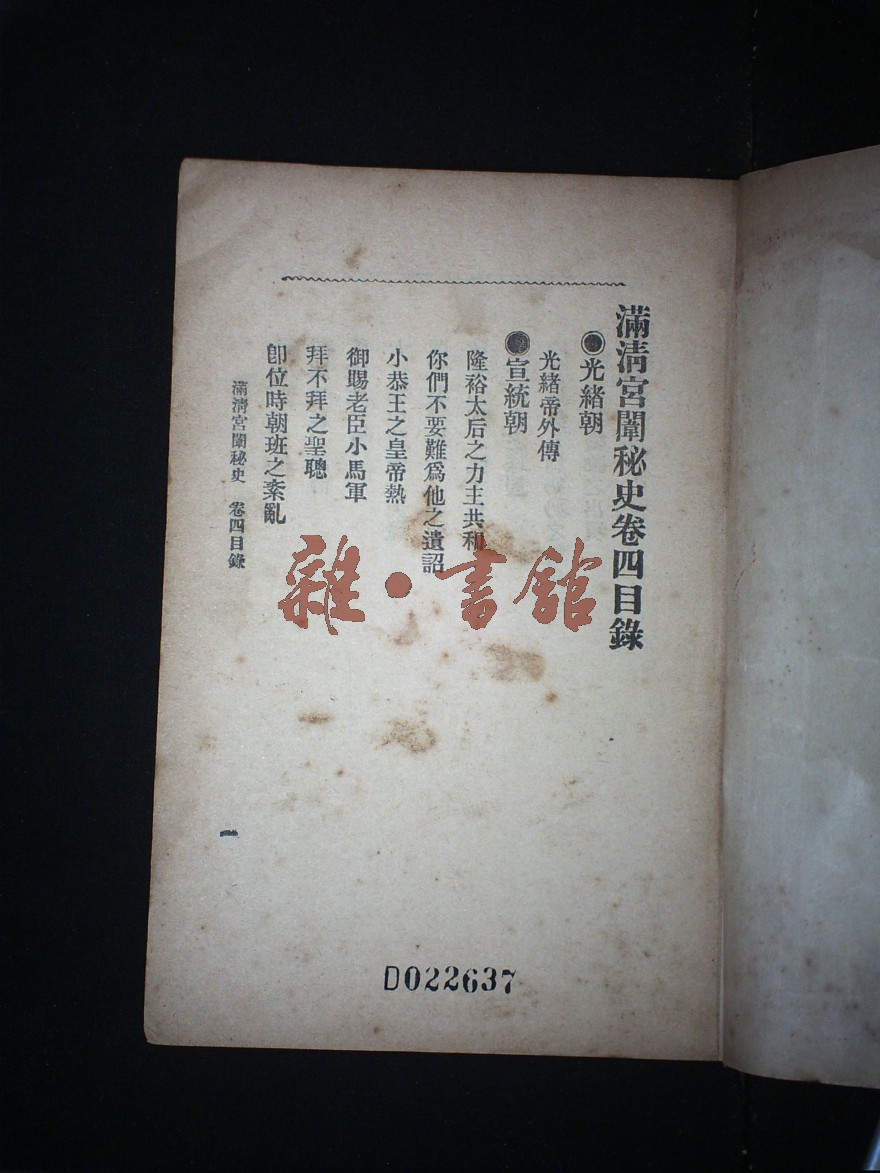 滿清宮闈秘史卷四目錄
●光緒朝
光緒帝外傳
●宣統朝
隆裕太后之力主共和
你們不要難爲他之遺詔
小恭王之皇帝熱
御賜老臣小馬軍
拜不拜之聖聰
卽位時朝班之紊亂
滿淸宮闈秘史 卷四目錄
一
雜·書館
D022637